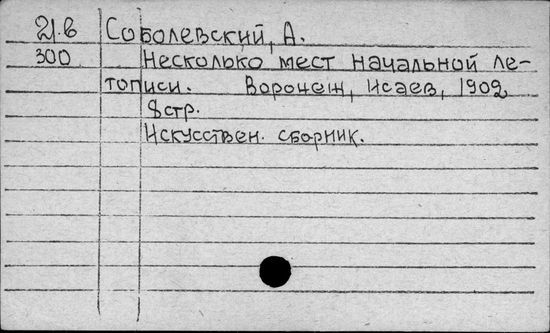 21.6 Соболевский, А.
300 Несколько мест начальной ле-
тописи. Воронеж, Исаев, 1902
8 стр.
Искусствен. сборник.